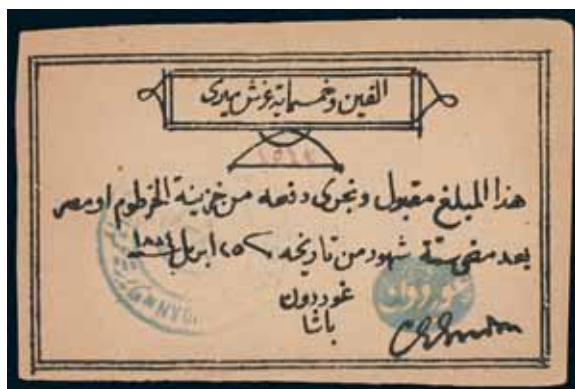 الفين وخمسماية غرش ميرى
هذا المبلغ مقبول ونجرى دفعه من خزينة الخرطوم او مصر
بعد مضى ستة شهور من تاريخه ٢٥ ابريل ١٨٨٤
غوردون
باشا
غوردون